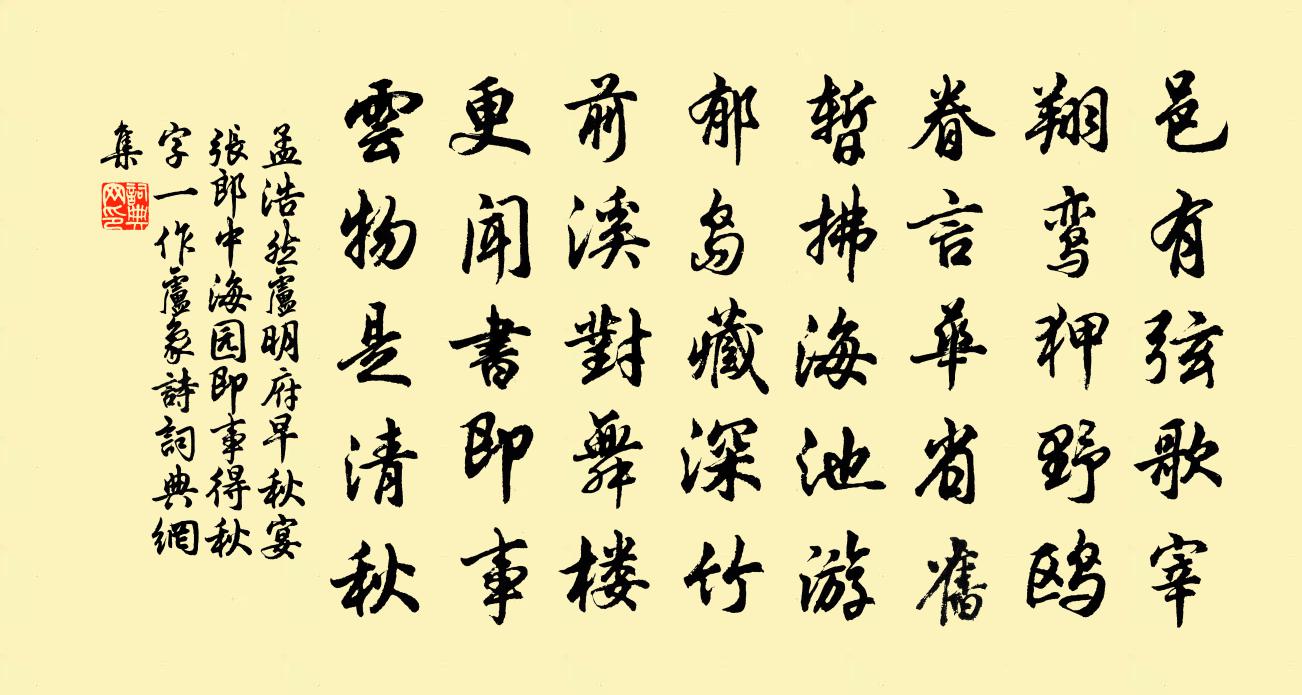 邑有弦歌宰
翔鸾狎野鸥
眷言華省舊
暫拂海池游
郁岛藏深竹
前溪對舞楼
更聞書即事
雲物是清秋
孟浩然盧明府早秋宴
張郎中海园即事得秋
字一作盧象詩詞典網
集
詞典
网印